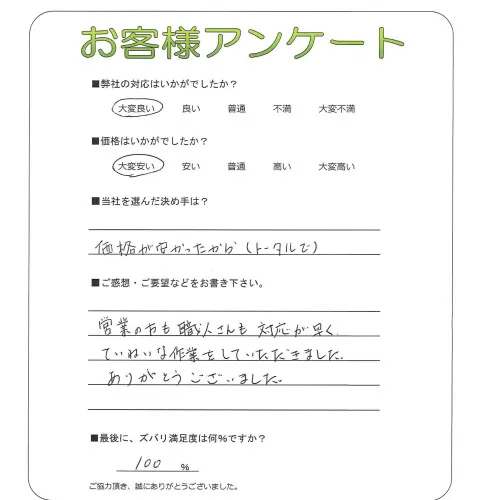 お客様アンケート
■弊社の対応はいかがでしたか？
大変良い 良い 普通 不満 大変不満
■価格はいかがでしたか？
大変安い 安い 普通 高い 大変高い
■当社を選んだ決め手は？
価格が安かったから(トータルで)
■ご感想・ご要望などをお書き下さい。
営業の方も職人さんも対応が早く
ていねいな作業をしていただきました。
ありがとうございました。
■最後に、ズバリ満足度は何%ですか？
100 %
ご協力頂き、誠にありがとうございました。